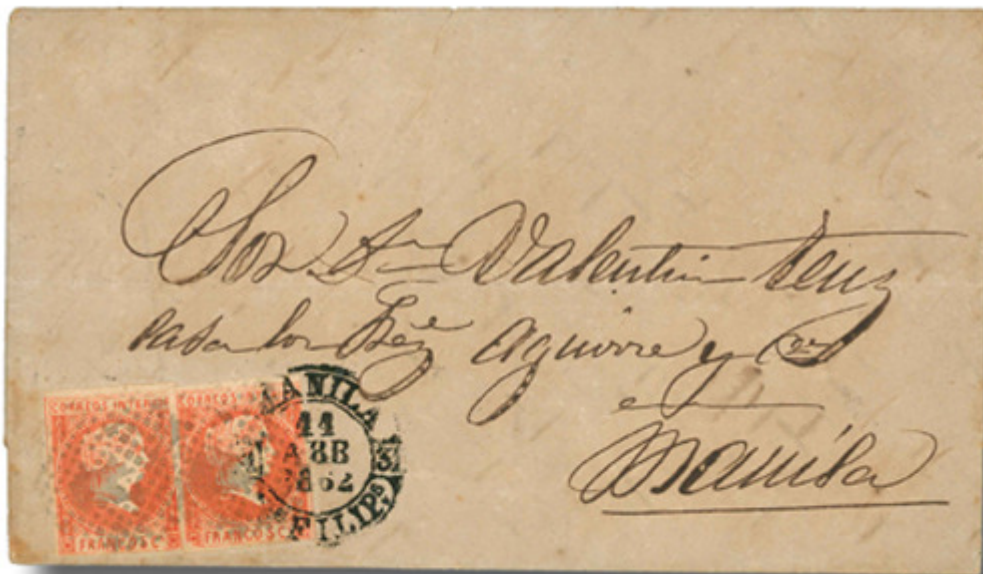 Sor Dn Valentin Teus
casa los Sres Aguirre y Ca
Manila
CORREOS INTERIOR
FRANCO 5 C
CORREOS
FRANCO 5 C
MANILA
11
ABR
1862
3
FILIPs